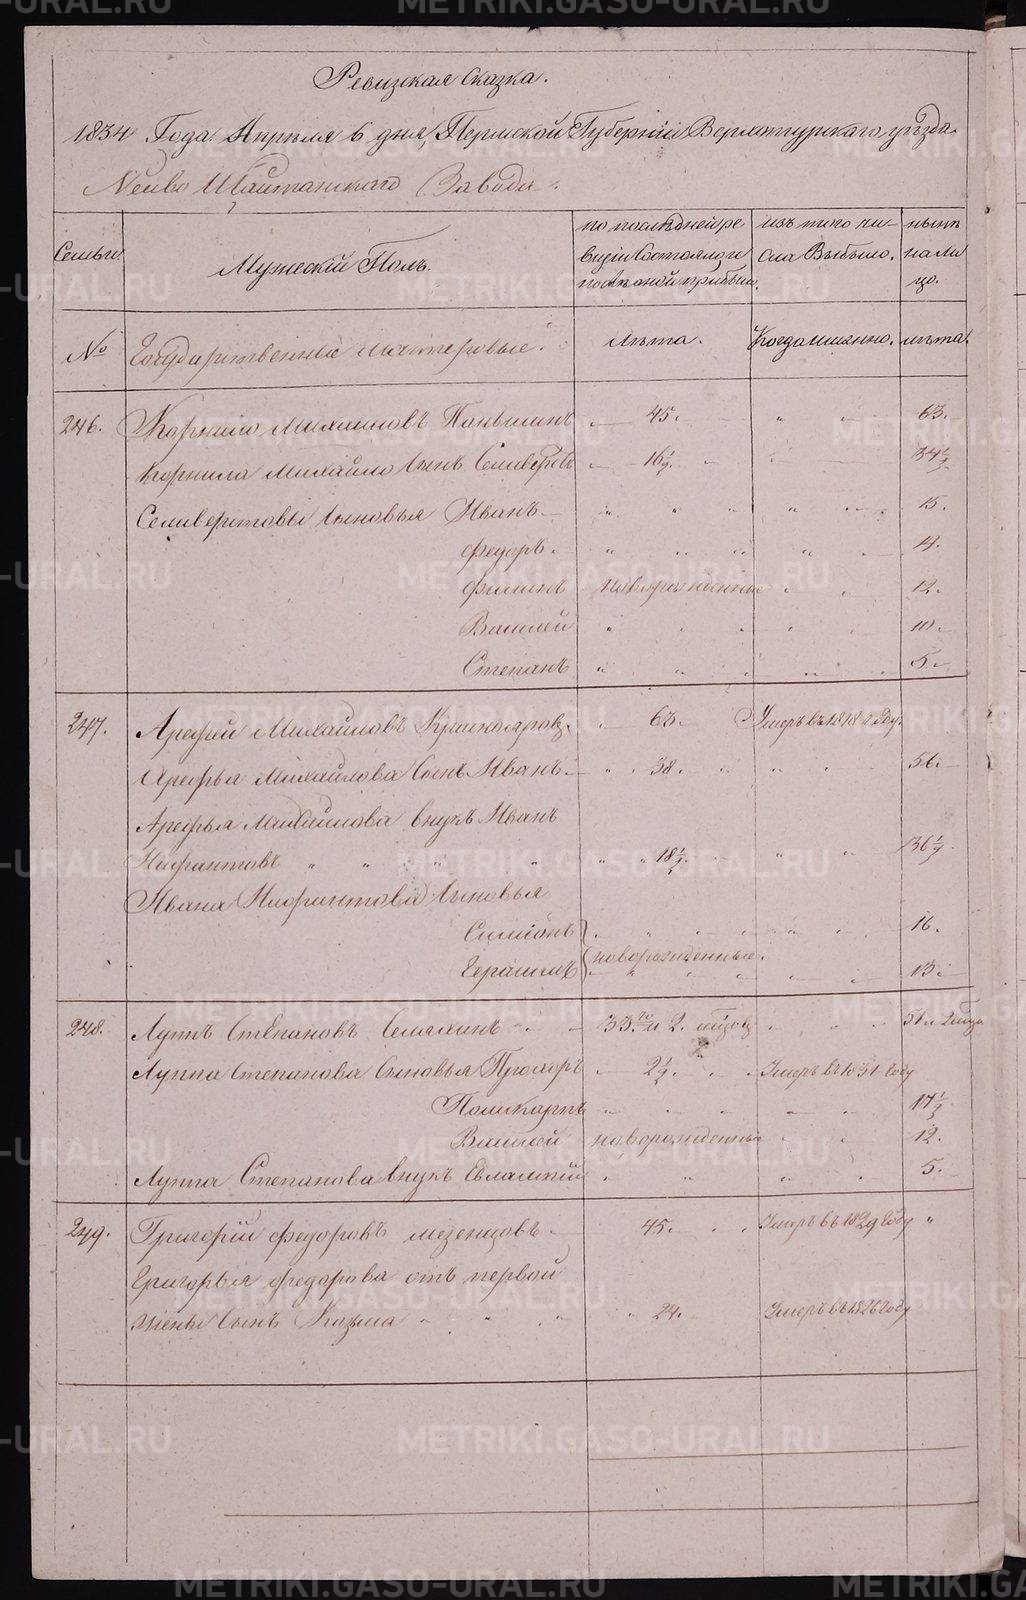 METRIKI.GASO-URAL.RU
Ревизская Сказка.
1834 Года Апреля 6 дня, Пермской Губернии Верхотурскаго уезда
Нейво Шайтанскаго Завода.
Семьи
Мужескій Полъ.
по последней ре
визіи Состояло и
после оной прибыло.
изъ того чи-
сла Выбыло.
ныне
на ли
цо.
№
Государственные мастеровые.
лѣта.
Когда именно.
лѣта.
246. Корнило Михаиловъ Паньшинъ 45. " 63.
Корнила Михайло сынъ Селиверстъ 16½. " 34½
Селиверстовы сыновья Иванъ " " " 15.
Федоръ. " " " " 14.
Филипъ новорожденные " 12.
Василей " " " 10.
Степанъ " " " 5.
247. Арефий Михайловъ Красноярова. 63. Умеръ въ 1818 году.
Арефья Михайлова Сынъ Иванъ 38. " 56.
Арефья Михайлова внукъ Иванъ
Нифантовъ " " " " 18½. " 36½
Ивана Нифантова сыновья
Симионъ " " " 16.
Герасимъ новорожденные. " 13.
248. Лупъ Степановъ Семахинъ 33. и 2. месяц " 51 и 2 месяца
Луппа Степанова Сыновья Прохоръ 2½. Умеръ въ 1831 году
Поликарпъ " " " 17½
Василей новорожденные " 12.
Луппа Степанова внукъ Евлампий " " " 5.
249. Григорій Федоровъ Мезенцовъ 45. Умеръ въ 1829 году "
Григорья Федорова отъ первой
жены сынъ Козма " " " 24. Умеръ въ 1826 году